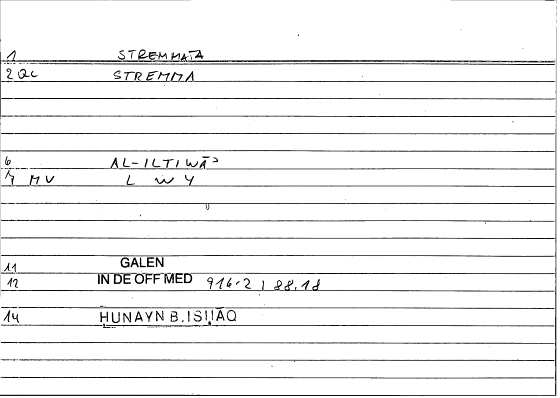 1 STREMMATA
2 QC STREMMA
6 AL-ILTIWĀʾ
7 MV L W Y
11 GALEN
12 IN DE OFF MED 916.2 / 88.18
14 ḤUNAYN B. ISḤĀQ